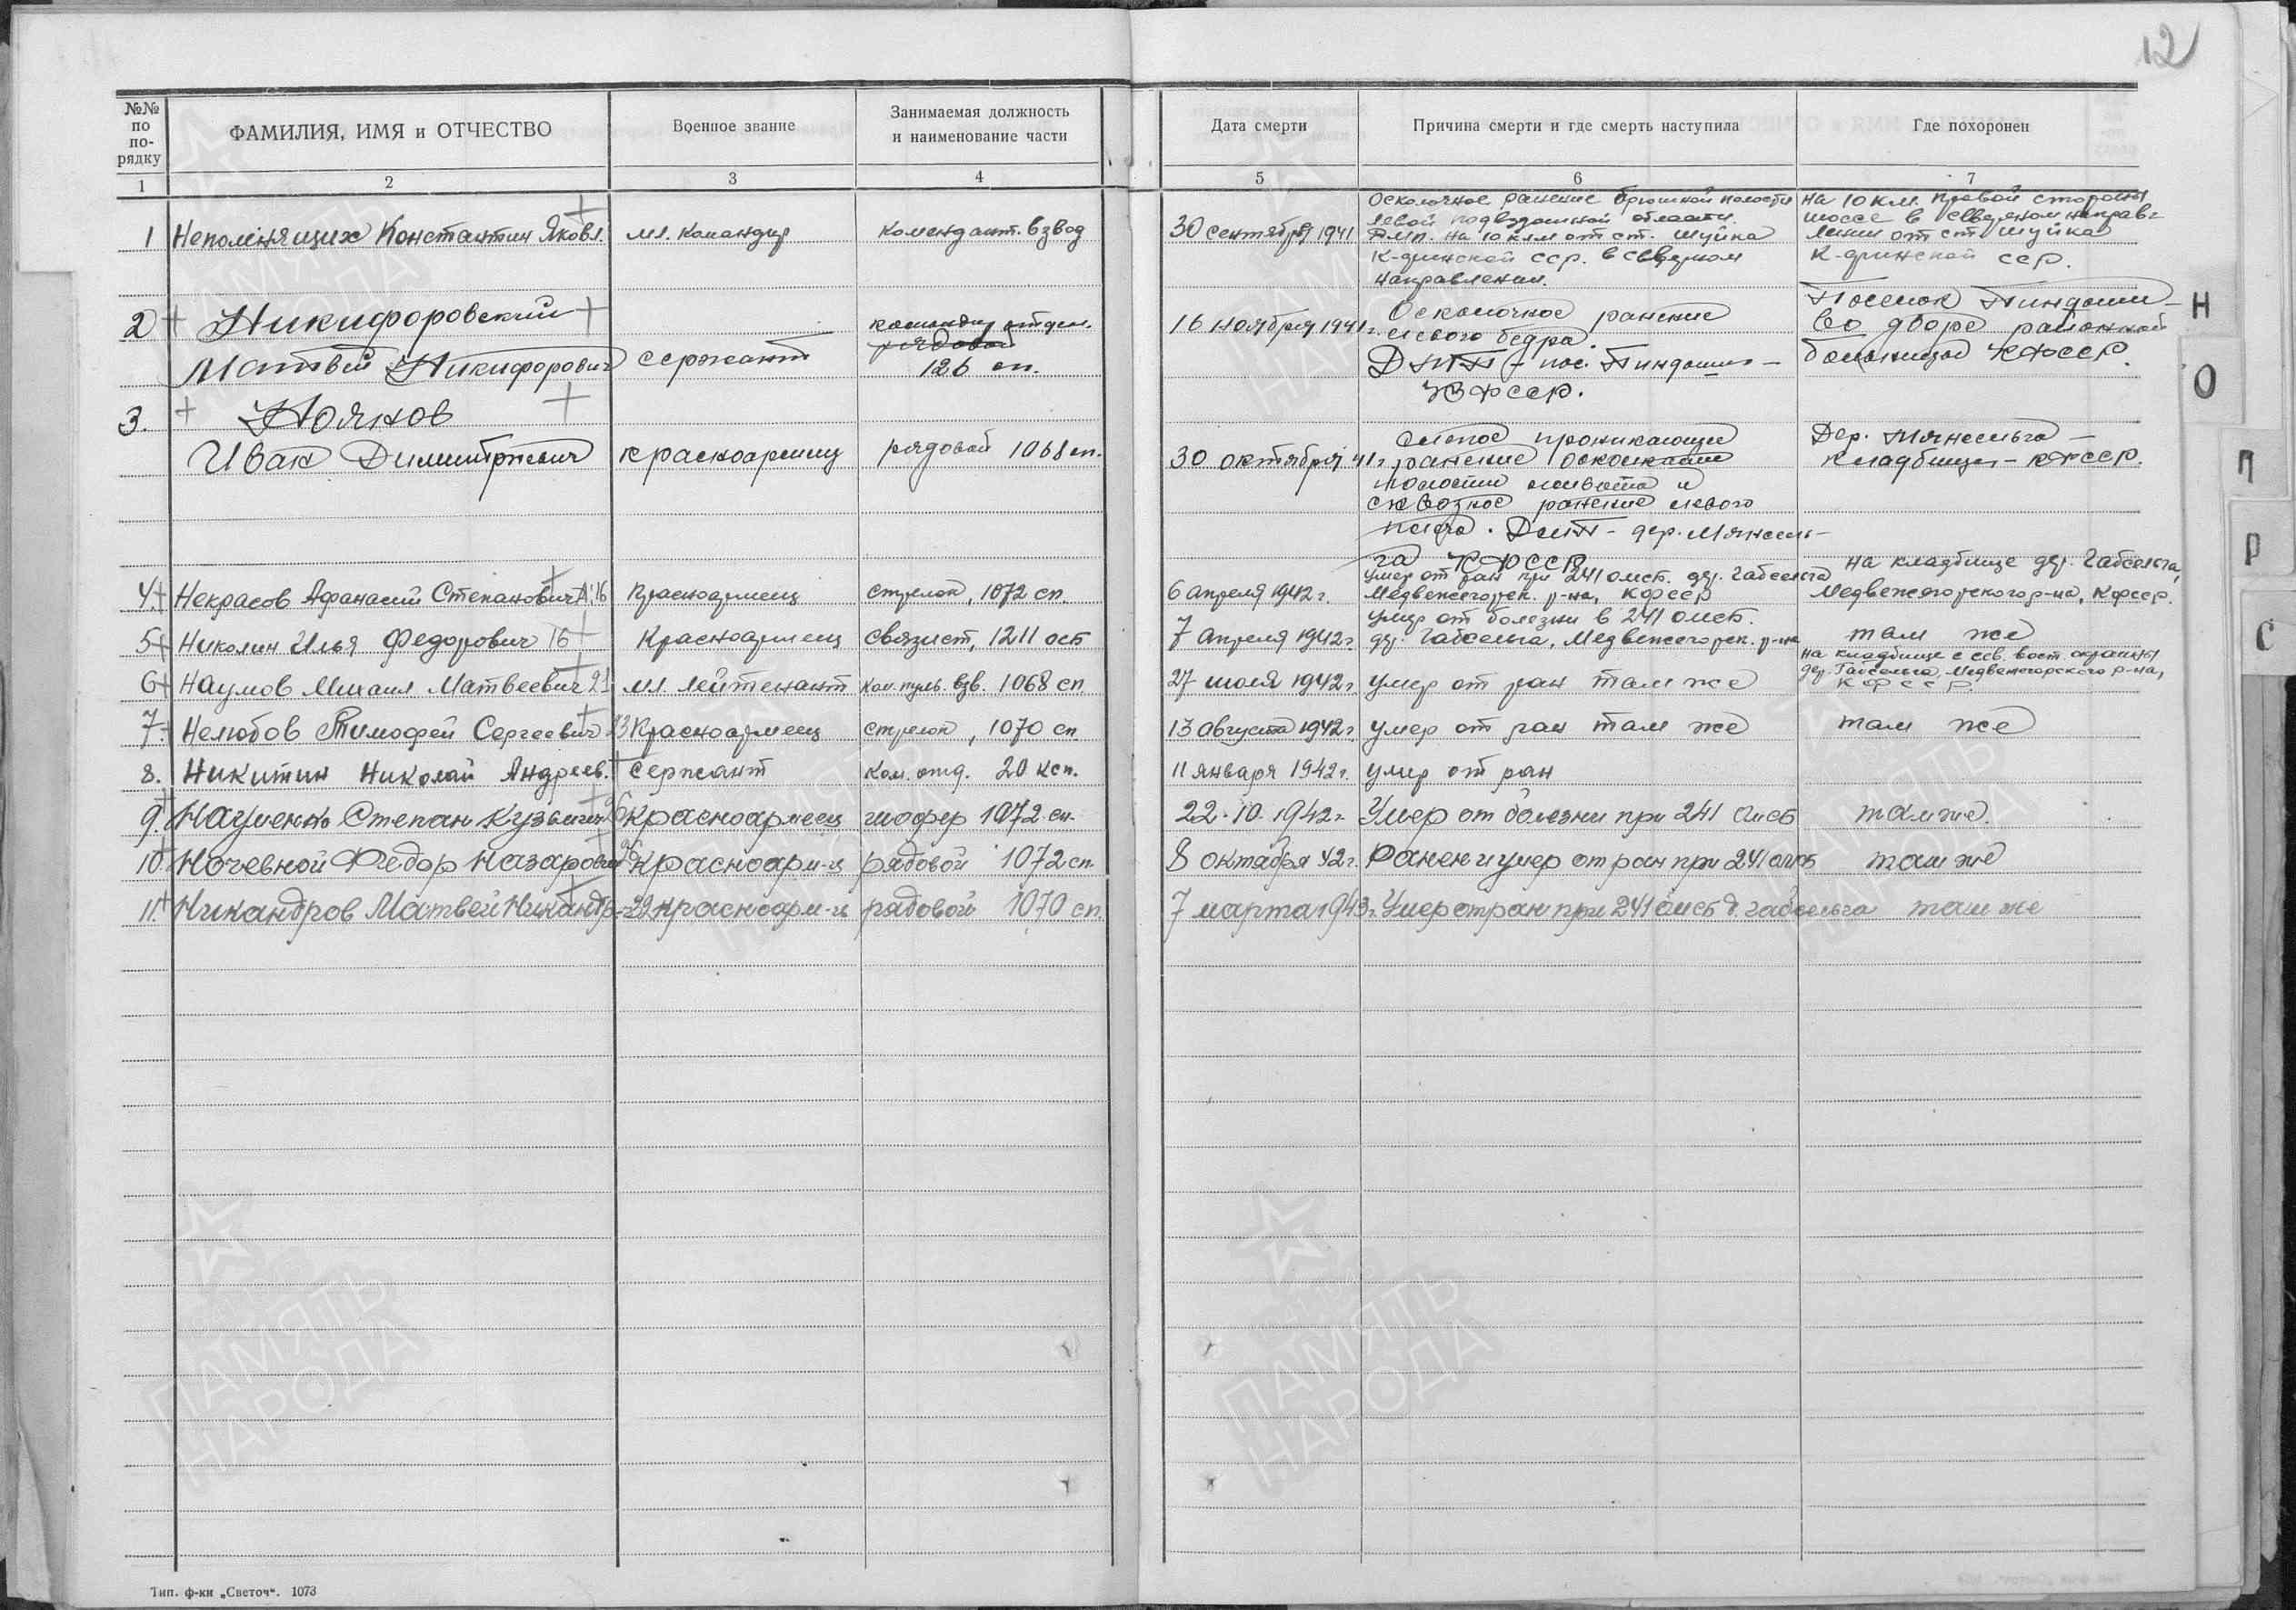 12
№№ по по-рядку
ФАМИЛИЯ, ИМЯ и ОТЧЕСТВО
Военное звание
Занимаемая должность
и наименование части
Дата смерти
Причина смерти и где смерть наступила
Где похоронен
1 2 3 4 5 6 7
1 Непомнящих Константин Яковл. мл. командир комендант. взвод 30 сентября 1941
Осколочное ранение брюшной полости
левой подвздошной области.
на 10 клм от ст. Шуйка
К-финской сср. в северном
направлении.
на 10 км. правой стороны
шоссе в северном направ-
лении от ст Шуйка
К-финской сср.
2 Никифоровский
Матвей Никифорович сержант
командир отдел.
рядовой
126 сп.
16 ноября 1941 г.
Осколочное ранение
левого бедра.
ДМП - пос. Пиндоши -
КФССР.
Поселок Пиндоши -
во дворе районной
больницы КФССР.
3. Нояков
Иван Димитриевич красноармеец рядовой 1068 сп. 30 октября 41 г
слепое проникающее
ранение осколками
полости живота и
сквозное ранение левого
ДМП - дер. Мянсель-
га КФССР
Дер. Мянсельга -
кладбище - КФССР.
4. Некрасов Афанасий Степанович 16 Красноармеец стрелок, 1072 сп. 6 апреля 1942 г.
умер от ран при 241 омсб. дер. Габсельга
Медвежегорск. р-на, КФССР
на кладбище дер. Габсельга,
Медвежегорского р-на, КФССР.
5 Николин Илья Федорович 16 Красноармеец связист, 1211 осб 7 апреля 1942 г.
умер от болезни в 241 омсб.
дер. Габсельга, Медвежегорск. р-на
там же
6 Наумов Михаил Матвеевич 21 мл. лейтенант ком. пуль. взв. 1068 сп 27 июля 1942 г. умер от ран там же
на кладбище с сев. вост. окраины
дер. Габсельга, Медвежегорского р-на,
КФССР
7. Нелюбов Тимофей Сергеевич 23 Красноармеец стрелок, 1070 сп. 13 августа 1942 г. умер от ран там же там же
8. Никитин Николай Андреев. сержант ком. отд. 20 ксп. 11 января 1942 г. умер от ран
9. Науменко Степан Кузьмич красноармеец шофер 1072 сп. 22.10.1942 г. Умер от болезни при 241 омсб там же.
10. Ночевной Федор Назарович красноарм-ц рядовой 1072 сп. 8 октября 42 г. Ранен и умер от ран при 241 омсб там же
11. Никандров Матвей Никандр- 22 красноарм-ц рядовой 1070 сп. 7 марта 1943 г. Умер от ран при 241 омсб д. Габсельга там же
Н
О
П
Р
С
ПАМЯТЬ
НАРОДА
Тип. ф-ки „Светоч“. 1073